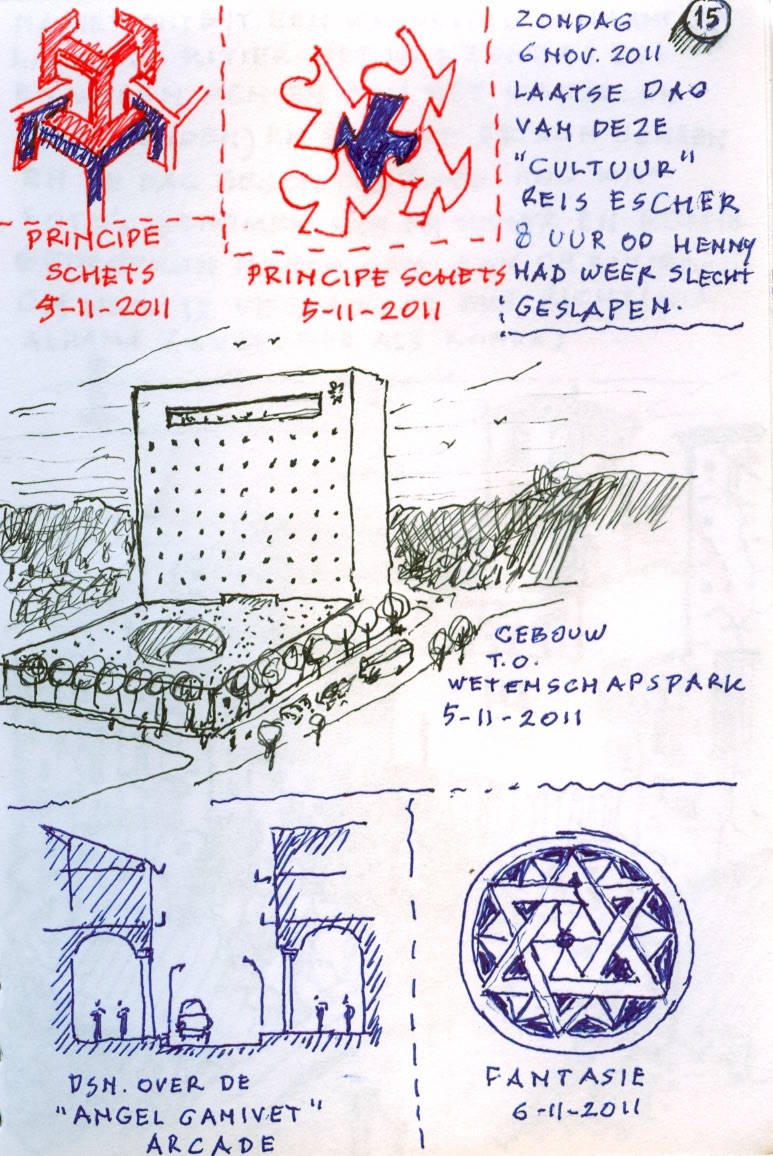 15
ZONDAG
6 NOV. 2011
LAATSE DAG
VAN DEZE
"CULTUUR"
REIS ESCHER
8 UUR OP HENNY
HAD WEER SLECHT
GESLAPEN.
PRINCIPE
SCHETS
5-11-2011
PRINCIPE SCHETS
5-11-2011
GEBOUW
T.O.
WETENSCHAPSPARK
5-11-2011
DSN. OVER DE
"ANGEL GANIVET"
ARCADE
FANTASIE
6-11-2011